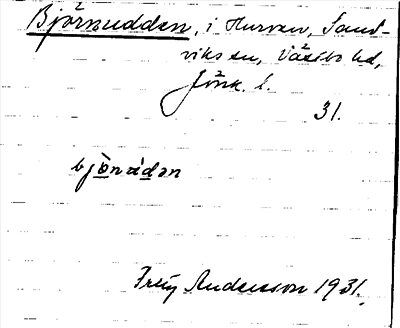 Björnudden, i Hurven, Sand-
viks sn, Västbo hd,
Jönk. l.
31.
bjò̱nùdan
Frey Andersson 1931.